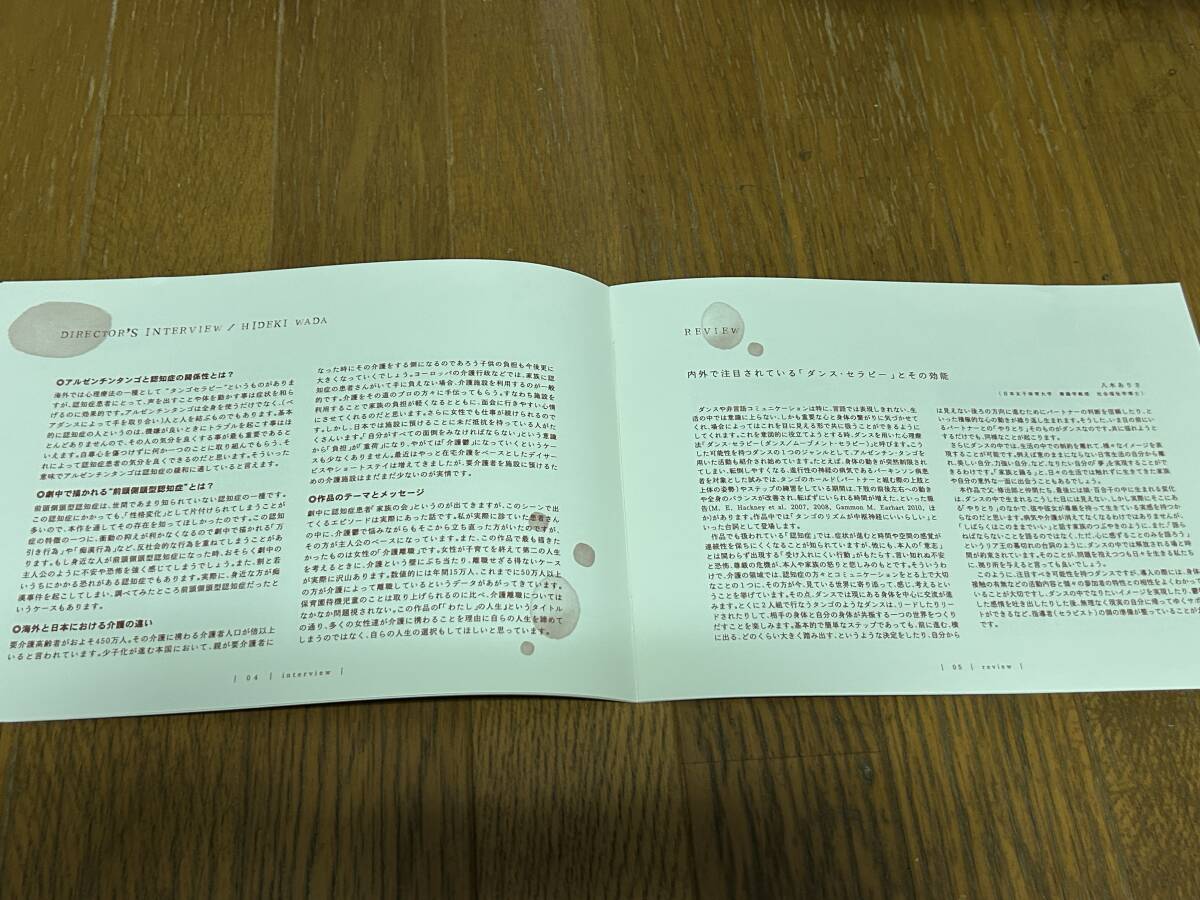 DIRECTOR'S INTERVIEW / HIDEKI WADA
◎アルゼンチンタンゴと認知症の関係性とは?
海外では心理療法の一種として"タンゴセラピー"というものがありま
すが、認知症患者にとって、声を出すことや体を動かす事は症状を和ら
げるのに効果的です。アルゼンチンタンゴは全身を使うだけでなく、(ペ
アダンスによって手を取り合い)人と人を結ぶものでもあります。基本
的に認知症の人というのは、機嫌が良いときにトラブルを起こす事はほ
とんどありませんので、その人の気分を良くする事が最も重要であると
いえます。自尊心を傷つけずに何か一つのことに取り組んでもらう、そ
れによって認知症患者の気分を良くできるのだと思います。そういった
意味でアルゼンチンタンゴは認知症の緩和に適していると言えます。
◎劇中で描かれる"前頭側頭型認知症"とは?
前頭側頭型認知症は、世間であまり知られていない認知症の一種です。
この認知症にかかっても、「性格変化」として片付けられてしまうことが
多いので、本作を通してその存在を知ってほしかったのです。この認知
症の特徴の一つに、衝動の抑えが利かなくなるので劇中で描かれる「万
引き行為」や「痴漢行為」など、反社会的な行為を重ねてしまうことがあ
ります。もし身近な人が前頭側頭型認知症になった時、おそらく劇中の
主人公のように不安や恐怖を強く感じてしまうでしょう。また、割と若
いうちにかかる恐れがある認知症でもあります。実際に、身近な方が痴
漢事件を起こしてしまい、調べてみたところ前頭側頭型認知症だったと
いうケースもあります。
◎海外と日本における介護の違い
要介護高齢者がおよそ450万人。その介護に携わる介護者人口が倍以上
いると言われています。少子化が進む本国において、親が要介護者に
なった時にその介護をする側になるのであろう子供の負担も今後更に
大きくなっていくでしょう。ヨーロッパの介護行政などでは、家族に認
知症の患者さんがいて手に負えない場合、介護施設を利用するのが一般
的です。介護をその道のプロの方々に手伝ってもらう。すなわち施設を
利用することで家族の負担が軽くなるとともに、面会に行きやすい心情
にさせてくれるのだと思います。さらに女性でも仕事が続けられるので
す。しかし、日本では施設に預けることに未だ抵抗を持っている人がた
くさんいます。「自分がすべての面倒をみなければならない」という意識
から「負担」が「重荷」になり、やがては「介護鬱」になっていくというケー
スも少なくありません。最近はやっと在宅介護をベースとしたデイサー
ビスやショートステイは増えてきましたが、要介護者を施設に預けるた
めの介護施設はまだまだ少ないのが実情です。
◎作品のテーマとメッセージ
劇中に認知症患者「家族の会」というのが出てきますが、このシーンで出
てくるエピソードは実際にあった話です。私が実際に診ていた患者さん
の中に、介護鬱で悩みながらもそこから立ち直った方がいたのですが、
その方が主人公のベースになっています。また、この作品で最も描きた
かったものは女性の「介護離職」です。女性が子育てを終えて第二の人生
を考えるときに、介護という壁にぶち当たり、離職せざる得ないケース
が実際に沢山あります。数値的には年間15万人、これまでに50万人以上
の方が介護によって離職しているというデータがあがってきています。
保育園待機児童のことは取り上げられるのに比べ、介護離職については
なかなか問題視されない。この作品の「『わたし』の人生」というタイトル
の通り、多くの女性達が介護に携わることを理由に自らの人生を諦めて
しまうのではなく、自らの人生の選択もしてほしいと思っています。
| 04 | interview |
REVIEW
内外で注目されている「ダンス・セラピー」とその効能
八木ありさ
(日本女子体育大学 舞踊学教授 社会福祉学博士)
ダンスや非言語コミュニケーションは特に、言語では表現しきれない、生
活の中では意識に上らない、しかも重要な心と身体の繋がりに気づかせて
くれ、場合によってはこれを目に見える形で共に扱うことができるように
してくれます。これを意図的に役立てようとする時、ダンスを用いた心理療
法「ダンス・セラピー(ダンス/ムーブメント・セラピー)」と呼びます。こう
した可能性を持つダンスの1つのジャンルとして、アルゼンチン・タンゴを
用いた活動も紹介され始めています。たとえば、身体の動きが突然制限され
てしまい、転倒しやすくなる、進行性の神経の病気であるパーキンソン病患
者を対象とした試みでは、タンゴのホールド(パートナーと組む際の上肢と
上体の姿勢)やステップの練習をしている期間は、下肢の前後左右への動き
や全身のバランスが改善され、転ばずにいられる時間が増えた、といった報
告(M. E. Hackney et al. 2007, 2008, Gammon M. Earhart 2010, ほ
か)があります。作品中では「タンゴのリズムが中枢神経にいいらしい」と
いった台詞として登場します。
作品でも扱われている「認知症」では、症状が進むと時間や空間の感覚が
連続性を保ちにくくなることが知られていますが、他にも、本人の「意志」
とは関わらず出現する「受け入れにくい行動」がもたらす、言い知れぬ不安
と恐怖、尊厳の危機が、本人や家族の怒りと悲しみのもとです。そういうわ
けで、介護の領域では、認知症の方々とコミュニケーションをとる上で大切
なことの1つに、その方が今、見ている世界に寄り添って、感じ、考えるとい
うことを挙げています。その点、ダンスでは現にある身体を中心に交流が進
みます。とくに2人組で行なうタンゴのようなダンスは、リードしたりリー
ドされたりして、相手の身体と自分の身体が共振する一つの世界をつくり
だすことを楽しみます。基本的で簡単なステップであっても、前に進む、横
に出る、どのくらい大きく踏み出す、というような決定をしたり、自分から
は見えない後ろの方向に進むためにパートナーの判断を信頼したり、と
いった積極的な心の動きが繰り返し生まれます。そうした、いま目の前にい
るパートナーとの「やりとり」、そのものがダンスなのです。共に揺れようと
するだけでも、同様なことが起こります。
さらにダンスの中では、生活の中での制約を離れて、様々なイメージを表
現することが可能です。例えば意のままにならない日常生活の自分から離
れ、美しい自分、力強い自分、など、なりたい自分が「夢」を実現することがで
きるわけです。「家族と踊る」と、日々の生活では触れずに生きてきた家族
や自分の意外な一面に出会うこともあるでしょう。
本作品で父・修治郎と仲間たち、最後には娘・百合子の中に生まれる変化
は、ダンスの中で生まれるこうした目には見えない、しかし実際にそこにあ
る「やりとり」のなかで、彼や彼女が尊厳を持って生きている実感を持つか
らなのだと思います。病気や介護が消えてなくなるわけではありませんが、
「しばらくはこのままでいい」と話す家族のつぶやきのように、また「語ら
ねばならないことを語るのではなく、ただ、心に感ずることのみを語ろう」
というリア王の幕切れの台詞のように、ダンスの中では解放される場と時
間が約束されています。そのことが、問題を抱えつつも日々を生きる私たち
に、拠り所を与えると言っても良いでしょう。
このように、注目すべき可能性を持つダンスですが、導入の際には、身体
接触の有無などの活動内容と様々の参加者の特性との相性をよくわかって
いることが大切ですし、ダンスの中でなりたいイメージを実現したり、鬱
した感情を吐き出したりした後、無理なく現実の自分に帰ってゆくサポ
ートができるなど、指導者(セラピスト)の側の準備が整っていることが
です。
| 05 | review |